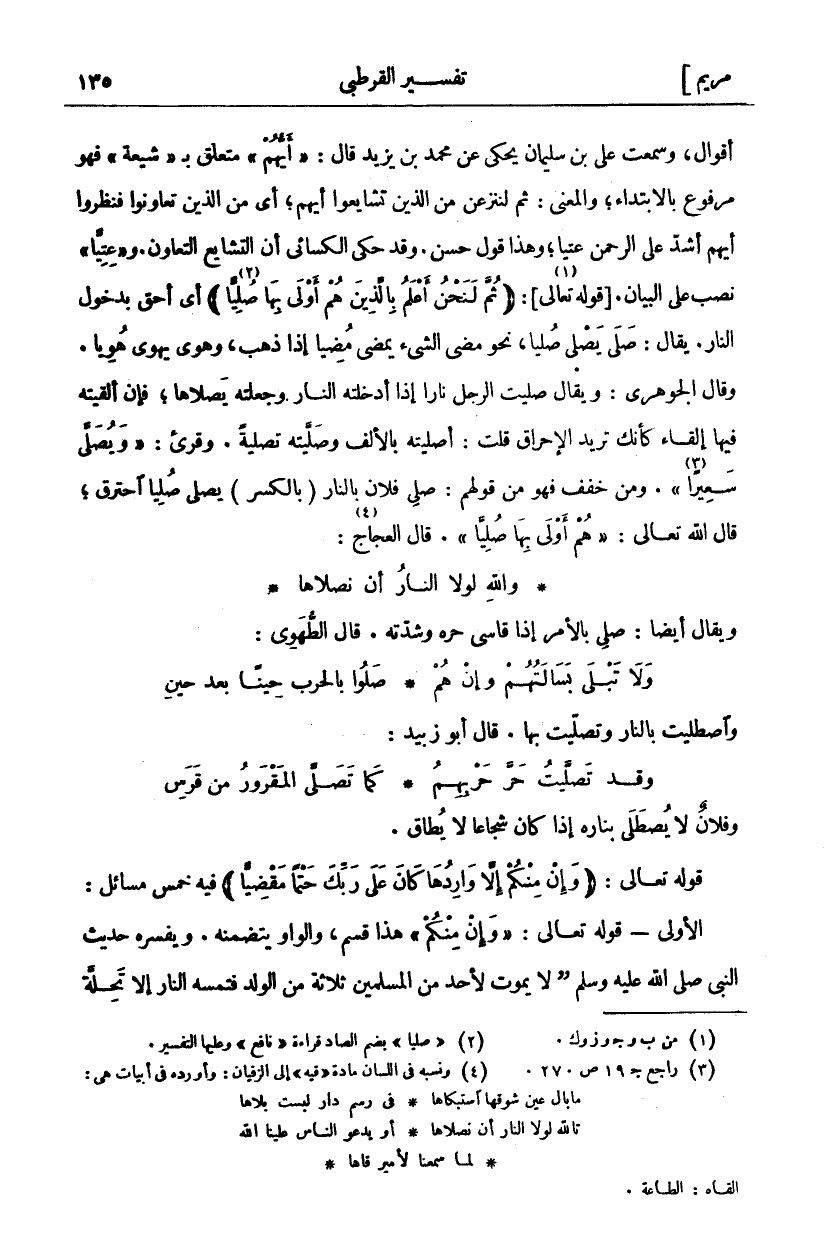 مريم] تفسير القرطبى ١٣٥
أقوال، وسمعت على بن سليمان يحكى عن محمد بن يزيد قال : « أَيُّهُمْ » متعلق بـ « شيعة » فهو
مرفوع بالابتداء؛ والمعنى : ثم لننزعن من الذين تشايعوا أيهم؛ أى من الذين تعاونوا فنظروا
أيهم أشدّ على الرحمن عتيا؛ وهذا قول حسن. وقد حكى الكسائى أن التشايع التعاون. و«عِتِيًّا»
نصب على البيان. [قوله تعالى](١): ﴿ ثُمَّ لَنَحْنُ أَعْلَمُ بِالَّذِينَ هُمْ أَوْلَى بِهَا صُلِيًّا(٢) ﴾ أى أحق بدخول
النار. يقال : صَلَى يَصْلَى صُليا، نحو مضى الشىء يمضى مُضِيا إذا ذهب، وهوى يهوى هُويا .
وقال الجوهرى : ويقال صليت الرجل نارا إذا أدخلته النار وجعلته يَصلاها؛ فإن ألقيته
فيها إلقاء كأنك تريد الإحراق قلت : أصليته بالألف وصَلَّيته تصليةً . وقرئ : « وَيُصَلَّى
سَعِيرًا(٣) » . ومن خفف فهو من قولهم : صلى فلان بالنار ( بالكسر ) يصلى صُليا آحترق ؛
قال الله تعالى : « هُمْ أَوْلَى بِهَا صُلِيًّا » . قال العجاج(٤) :
* واللهِ لولا النارُ أن نصلاها *
ويقال أيضا : صلِى بالأمر إذا قاسى حره وشدّته . قال الطُّهَوِى :
وَلَا تَبْلَى بَسَالَتُهُمْ وإنْ هُمْ * صَلُوا بالحرب حِينًا بعد حينِ
وآصطليت بالنار وتصلّيت بها . قال أبو زبيد :
وقد تَصَلَّيتُ حَرَّ حَرْبِهِمُ * كَمَا تَصَلَّى المَقْرُورُ من قَرَسِ
وفلانٌ لا يُصطَلَى بناره إذا كان شجاعا لا يُطاق .
قوله تعالى : ﴿ وَإِنْ مِنْكُمْ إِلَّا وَارِدُهَا كَانَ عَلَى رَبِّكَ حَتْمًا مَقْضِيًّا ﴾ فيه خمس مسائل :
الأولى — قوله تعالى : «وَإِنْ مِنْكُمْ» هذا قسم، والواو يتضمنه . ويفسره حديث
النبى صلى الله عليه وسلم ” لا يموت لأحد من المسلمين ثلاثة من الولد فتمسه النار إلا تَحِلَّة
(١) من ب و ج و ز و ك . (٢) « صليا » بضم الصاد قراءة « نافع » وعليها التفسير .
(٣) راجع جـ ١٩ ص ٢٧٠ . (٤) ونسبه فى اللسان مادة «فيه» إلى الزفيان : وأورده فى أبيات هى :
مابال عين شوقها آستبكاها * فى رسم دار لبست بلاها
تالله لولا النار أن نصلاها * أو يدعو الناس علينا الله
* لما سمعنا لأمير قاها *
القاه : الطاعة .